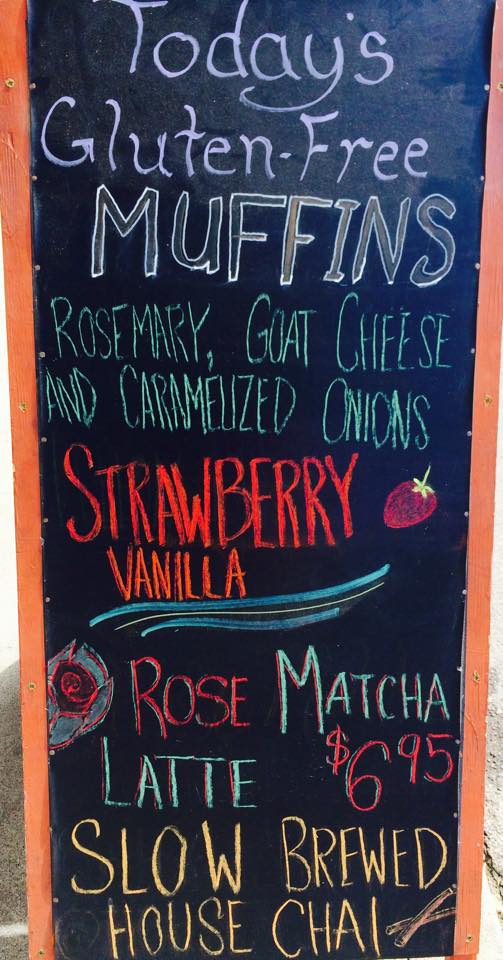 Today's
Gluten-Free
MUFFINS
ROSEMARY, GOAT CHEESE
AND CARAMELIZED ONIONS
STRAWBERRY
VANILLA
ROSE MATCHA
LATTE $6.95
SLOW BREWED
HOUSE CHAI